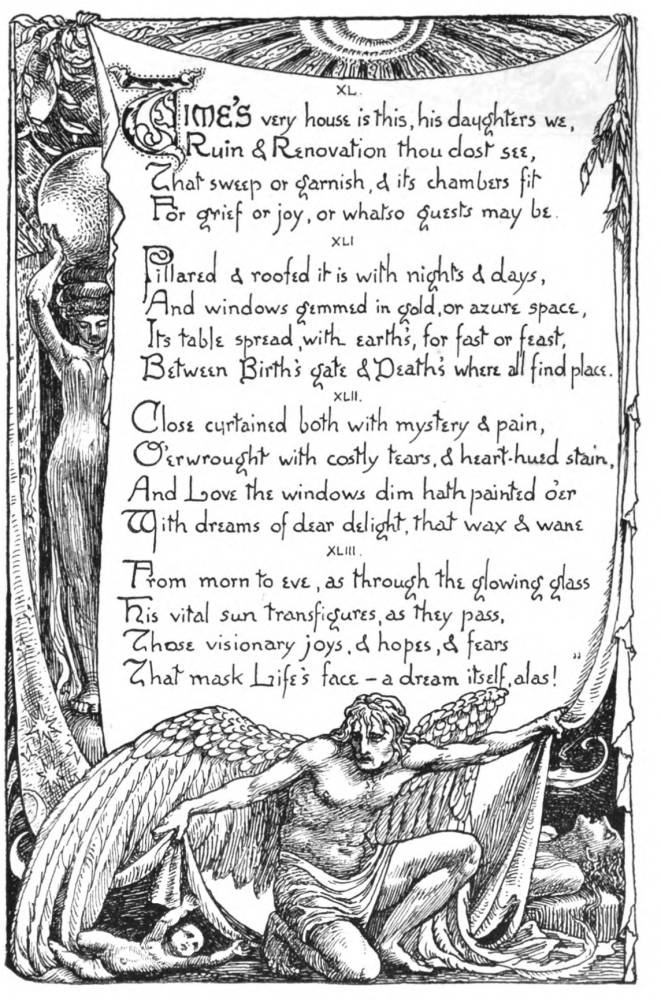 XL.
TIME'S very house is this, his daughters we,
Ruin & Renovation thou dost see,
That sweep or garnish, & its chambers fit
For grief or joy, or whatso guests may be.
XLI
Pillared & roofed it is with nights & days,
And windows gemmed in gold, or azure space,
Its table spread, with earth's, for fast or feast,
Between Birth's gate & Death's where all find place.
XLII.
Close curtained both with mystery & pain,
O'erwrought with costly tears, & heart-hued stain,
And Love the windows dim hath painted o'er
With dreams of dear delight, that wax & wane
XLIII.
From morn to eve, as through the glowing glass
His vital sun transfigures, as they pass,
Those visionary joys, & hopes, & fears
That mask Life's face – a dream itself, alas!"